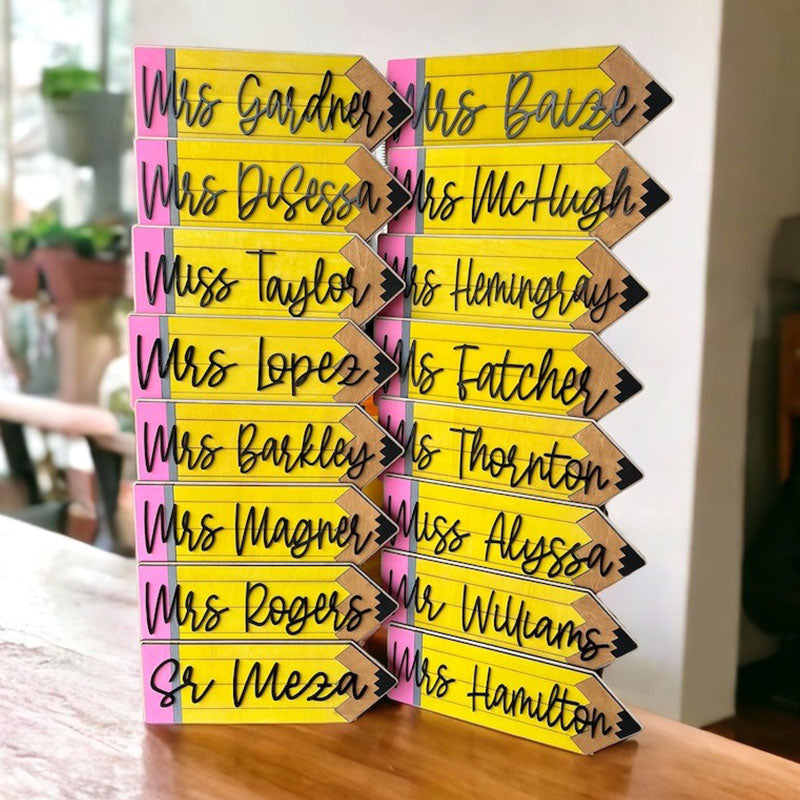 Mrs Gardner
Mrs DiSessa
Miss Taylor
Mrs Lopez
Mrs Barkley
Mrs Magner
Mrs Rogers
Sr Meza
Mrs Baize
Mrs McHugh
Mrs Hemingray
Ms Fatcher
Ms Thornton
Miss Alyssa
Mr Williams
Mrs Hamilton